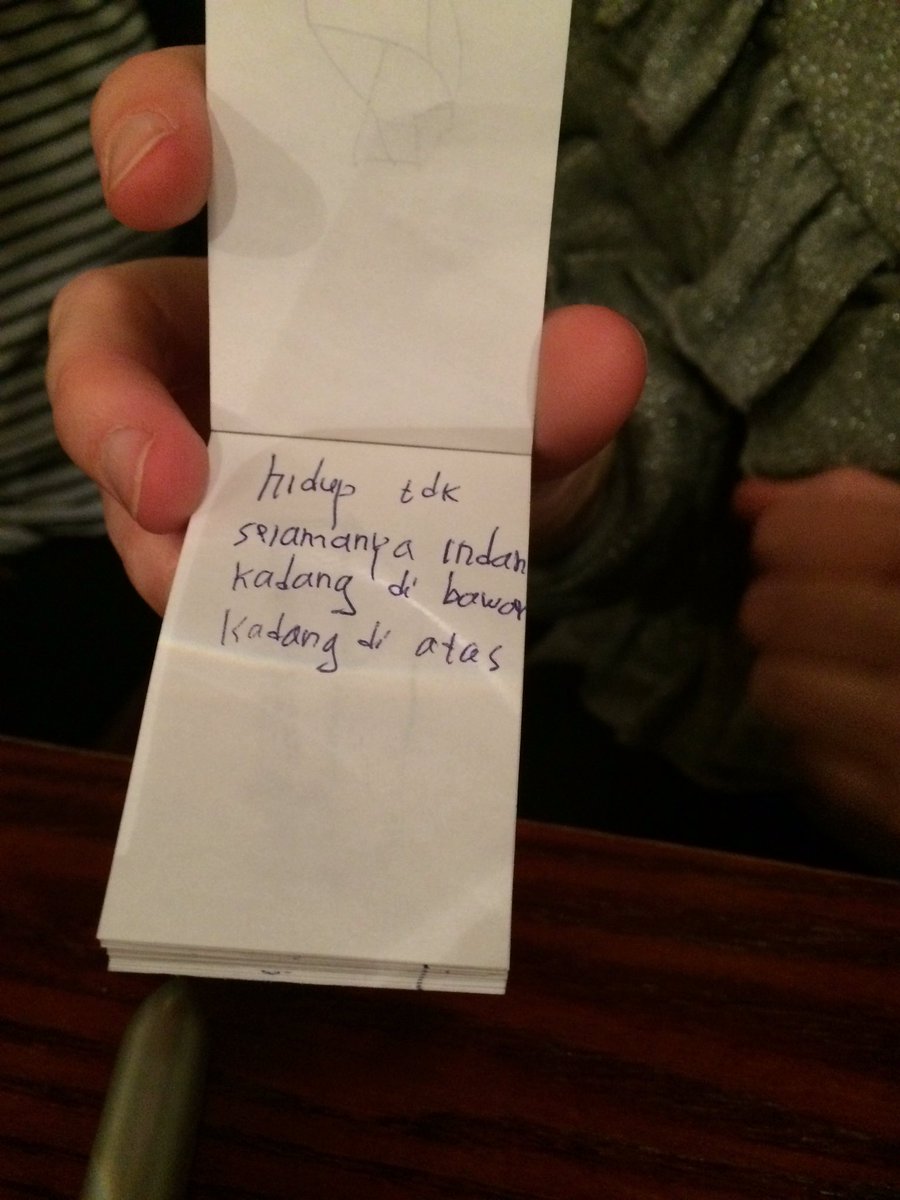 hidup tdk
selamanya indah
kadang di bawah
kadang di atas